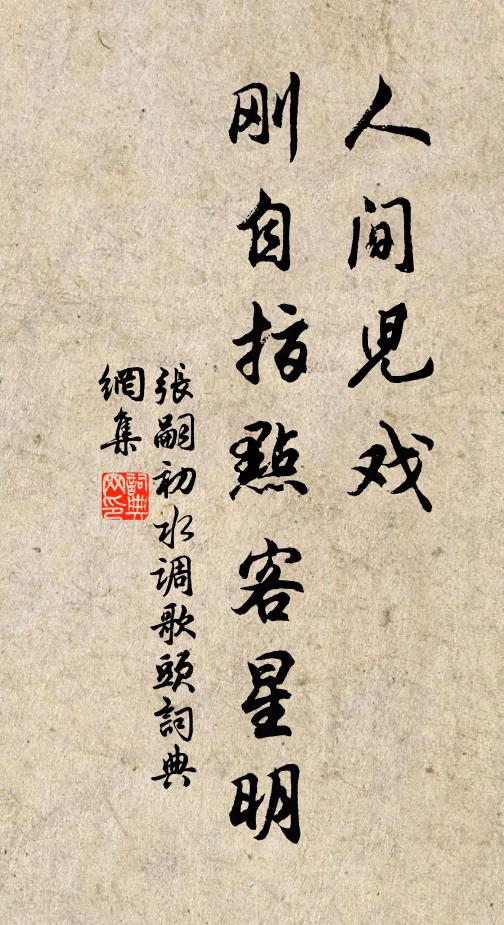 人间児戏
刚自指點客星明
張嗣初水调歌頭詞典
網集
詞典
网印